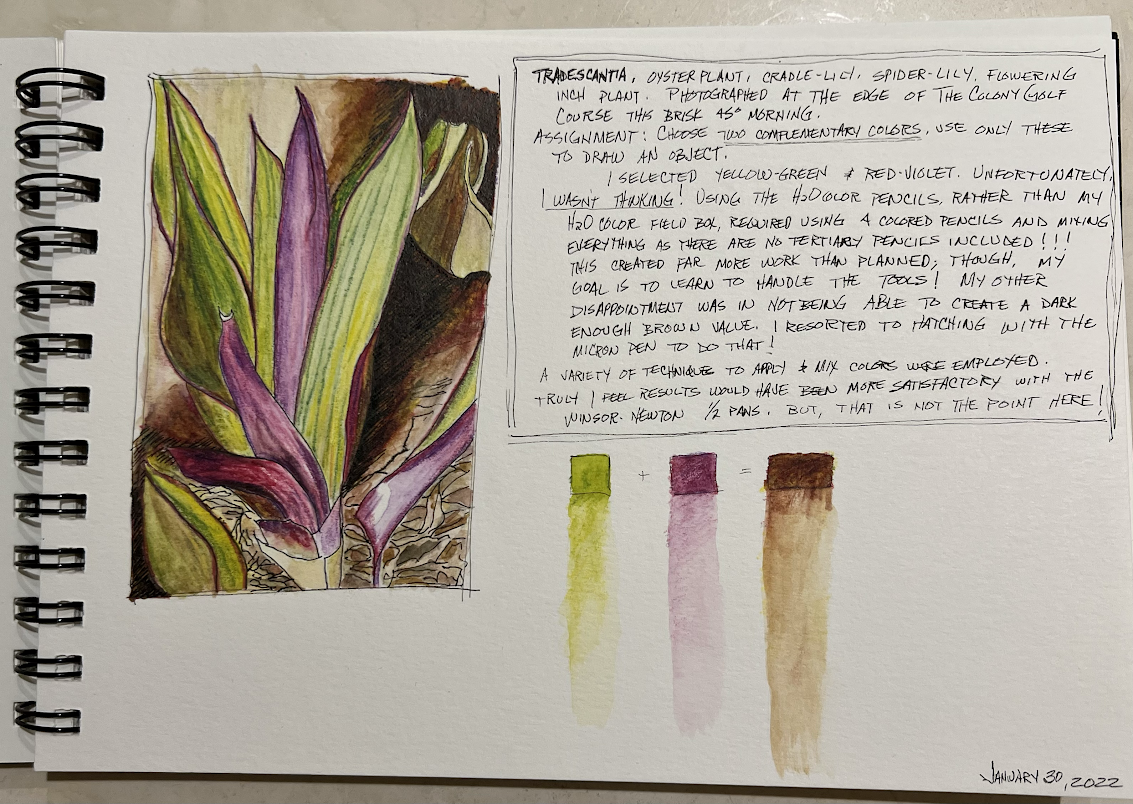 TRADESCANTIA, OYSTER PLANT, CRADLE-LILY, SPIDER-LILY, FLOWERING
INCH PLANT. PHOTOGRAPHED AT THE EDGE OF THE COLONY GOLF
COURSE THIS BRISK 45° MORNING.
ASSIGNMENT: CHOOSE TWO COMPLEMENTARY COLORS, USE ONLY THESE
TO DRAW AN OBJECT.
I SELECTED YELLOW-GREEN & RED-VIOLET. UNFORTUNATELY,
I WASN'T THINKING! USING THE H2O COLOR PENCILS, RATHER THAN MY
H2O COLOR FIELD BOX, REQUIRED USING 4 COLORED PENCILS AND MIXING
EVERYTHING AS THERE ARE NO TERTIARY PENCILS INCLUDED!!!
THIS CREATED FAR MORE WORK THAN PLANNED; THOUGH, MY
GOAL IS TO LEARN TO HANDLE THE TOOLS! MY OTHER
DISAPPOINTMENT WAS IN NOT BEING ABLE TO CREATE A DARK
ENOUGH BROWN VALUE. I RESORTED TO HATCHING WITH THE
MICRON PEN TO DO THAT!
A VARIETY OF TECHNIQUES TO APPLY & MIX COLORS WERE EMPLOYED.
TRULY I FEEL RESULTS WOULD HAVE BEEN MORE SATISFACTORY WITH THE
WINSOR-NEWTON 1/2 PANS. BUT, THAT IS NOT THE POINT HERE!
+ =
JANUARY 30, 2022